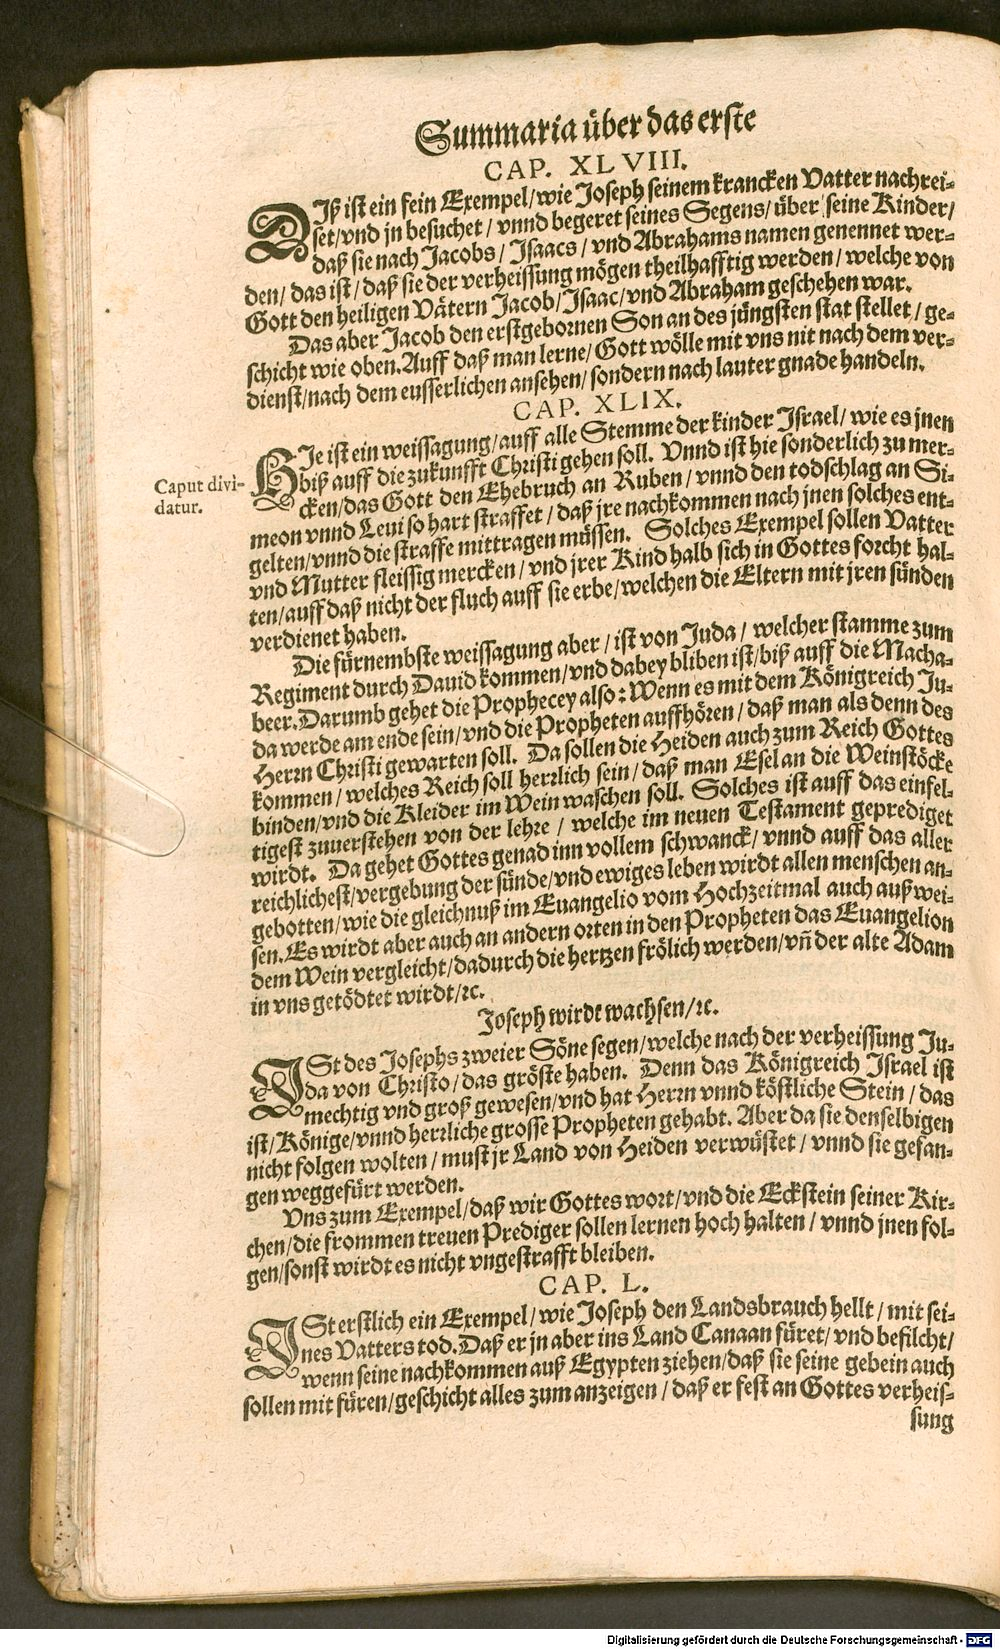 Summaria über das erste
CAP. XLVIII.
DIß ist ein fein Exempel/wie Joseph seinem krancken Vatter nachrei-
set/vnd jn besuchet/vnnd begeret seines Segens/über seine Kinder/
daß sie nach Jacobs/Isaacs/vnd Abrahams namen genennet wer-
den/das ist/daß sie der verheissung mögen theilhafftig werden/welche von
Gott den heiligen Vätern Jacob/Isaac/vnd Abraham geschehen war.
Das aber Jacob den erstgebornen Son an des jüngsten stat stellet/ge-
schicht wie oben. Auff daß man lerne/Gott wölle mit vns nit nach dem ver-
dienst/nach dem eusserlichen ansehen/sondern nach lauter gnade handeln.
CAP. XLIX.
HIe ist ein weissagung/auff alle Stemme der kinder Israel/wie es jnen
biß auff die zukunfft Christi gehen soll. Vnnd ist hie sonderlich zu mer-
Caput divi-
datur.
cken/das Gott den Ehebruch an Ruben/vnnd den todschlag an Si-
meon vnnd Leui so hart straffet/daß jre nachkommen nach jnen solches ent-
gelten/vnnd die straffe mittragen müssen. Solches Exempel sollen Vatter
vnd Mutter fleissig mercken/vnd jrer Kind halb sich in Gottes forcht hal-
ten/auff daß nicht der fluch auff sie erbe/welchen die Eltern mit jren sünden
verdienet haben.
Die fürnembste weissagung aber/ist von Juda/welcher stamme zum
Regiment durch Dauid kommen/vnd dabey bliben ist/biß auff die Macha-
beer. Darumb gehet die Prophecey also: Wenn es mit dem Königreich Ju-
da werde am ende sein/vnd die Propheten auffhören/daß man als denn des
Herrn Christi gewarten soll. Da sollen die Heiden auch zum Reich Gottes
kommen/welches Reich soll herrlich sein/daß man Esel an die Weinstöcke
binden/vnd die Kleider im Wein waschen soll. Solches ist auff das einfel-
tigest zuuerstehen von der lehre/welche im neuen Testament geprediget
wirdt. Da gehet Gottes genad inn vollem schwanck/vnnd auff das aller
reichlichest/vergebung der sünde/vnd ewiges leben wirdt allen menschen an-
gebotten/wie die gleichnuß im Euangelio vom Hochzeitmal auch auß wei-
sen. Es wirdt aber auch an andern orten in den Propheten das Euangelion
dem Wein vergleicht/dadurch die hertzen frölich werden/vn̄ der alte Adam
in vns getödtet wirdt/ꝛc.
Joseph wirdt wachsen/ꝛc.
ISt des Josephs zweier Söne segen/welche nach der verheissung Ju-
da von Christo/das gröste haben. Denn das Königreich Israel ist
mechtig vnd groß gewesen/vnd hat Herrn vnnd köstliche Stein/das
ist/Könige/vnnd herrliche grosse Propheten gehabt. Aber da sie denselbigen
nicht folgen wolten/must jr Land von Heiden verwüstet/vnnd sie gefan-
gen weggefürt werden.
Vns zum Exempel/daß wir Gottes wort/vnd die Eckstein seiner Kir-
chen/die frommen treuen Prediger sollen lernen hoch halten/vnnd jnen fol-
gen/sonst wirdt es nicht vngestrafft bleiben.
CAP. L.
ISt erstlich ein Exempel/wie Joseph den Landsbrauch hellt/mit sei-
nes Vatters tod. Daß er jn aber ins Land Canaan füret/vnd befilcht/
wenn seine nachkommen auß Egypten ziehen/daß sie seine gebein auch
sollen mit füren/geschicht alles zum anzeigen/daß er fest an Gottes verheis-
sung
Digitalisierung gefördert durch die Deutsche Forschungsgemeinschaft - DFG